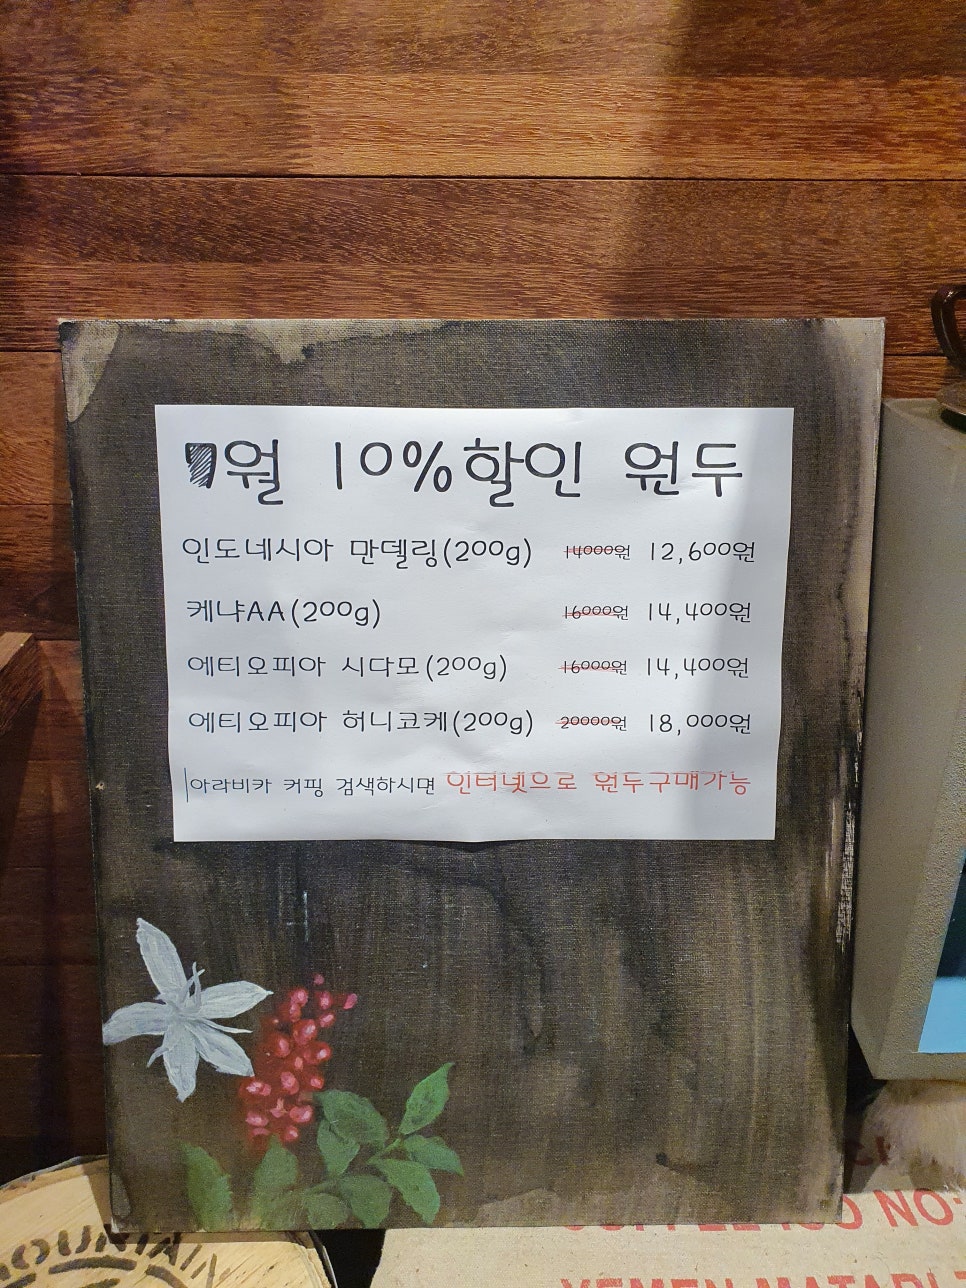 7월 10%할인 원두
인도네시아 만델링(200g) 14000원 12,600원
케냐AA(200g) 16000원 14,400원
에티오피아 시다모(200g) 16000원 14,400원
에티오피아 허니코케(200g) 20000원 18,000원
아라비카 커핑 검색하시면 인터넷으로 원두구매가능
NO:
YEMEN MATARI